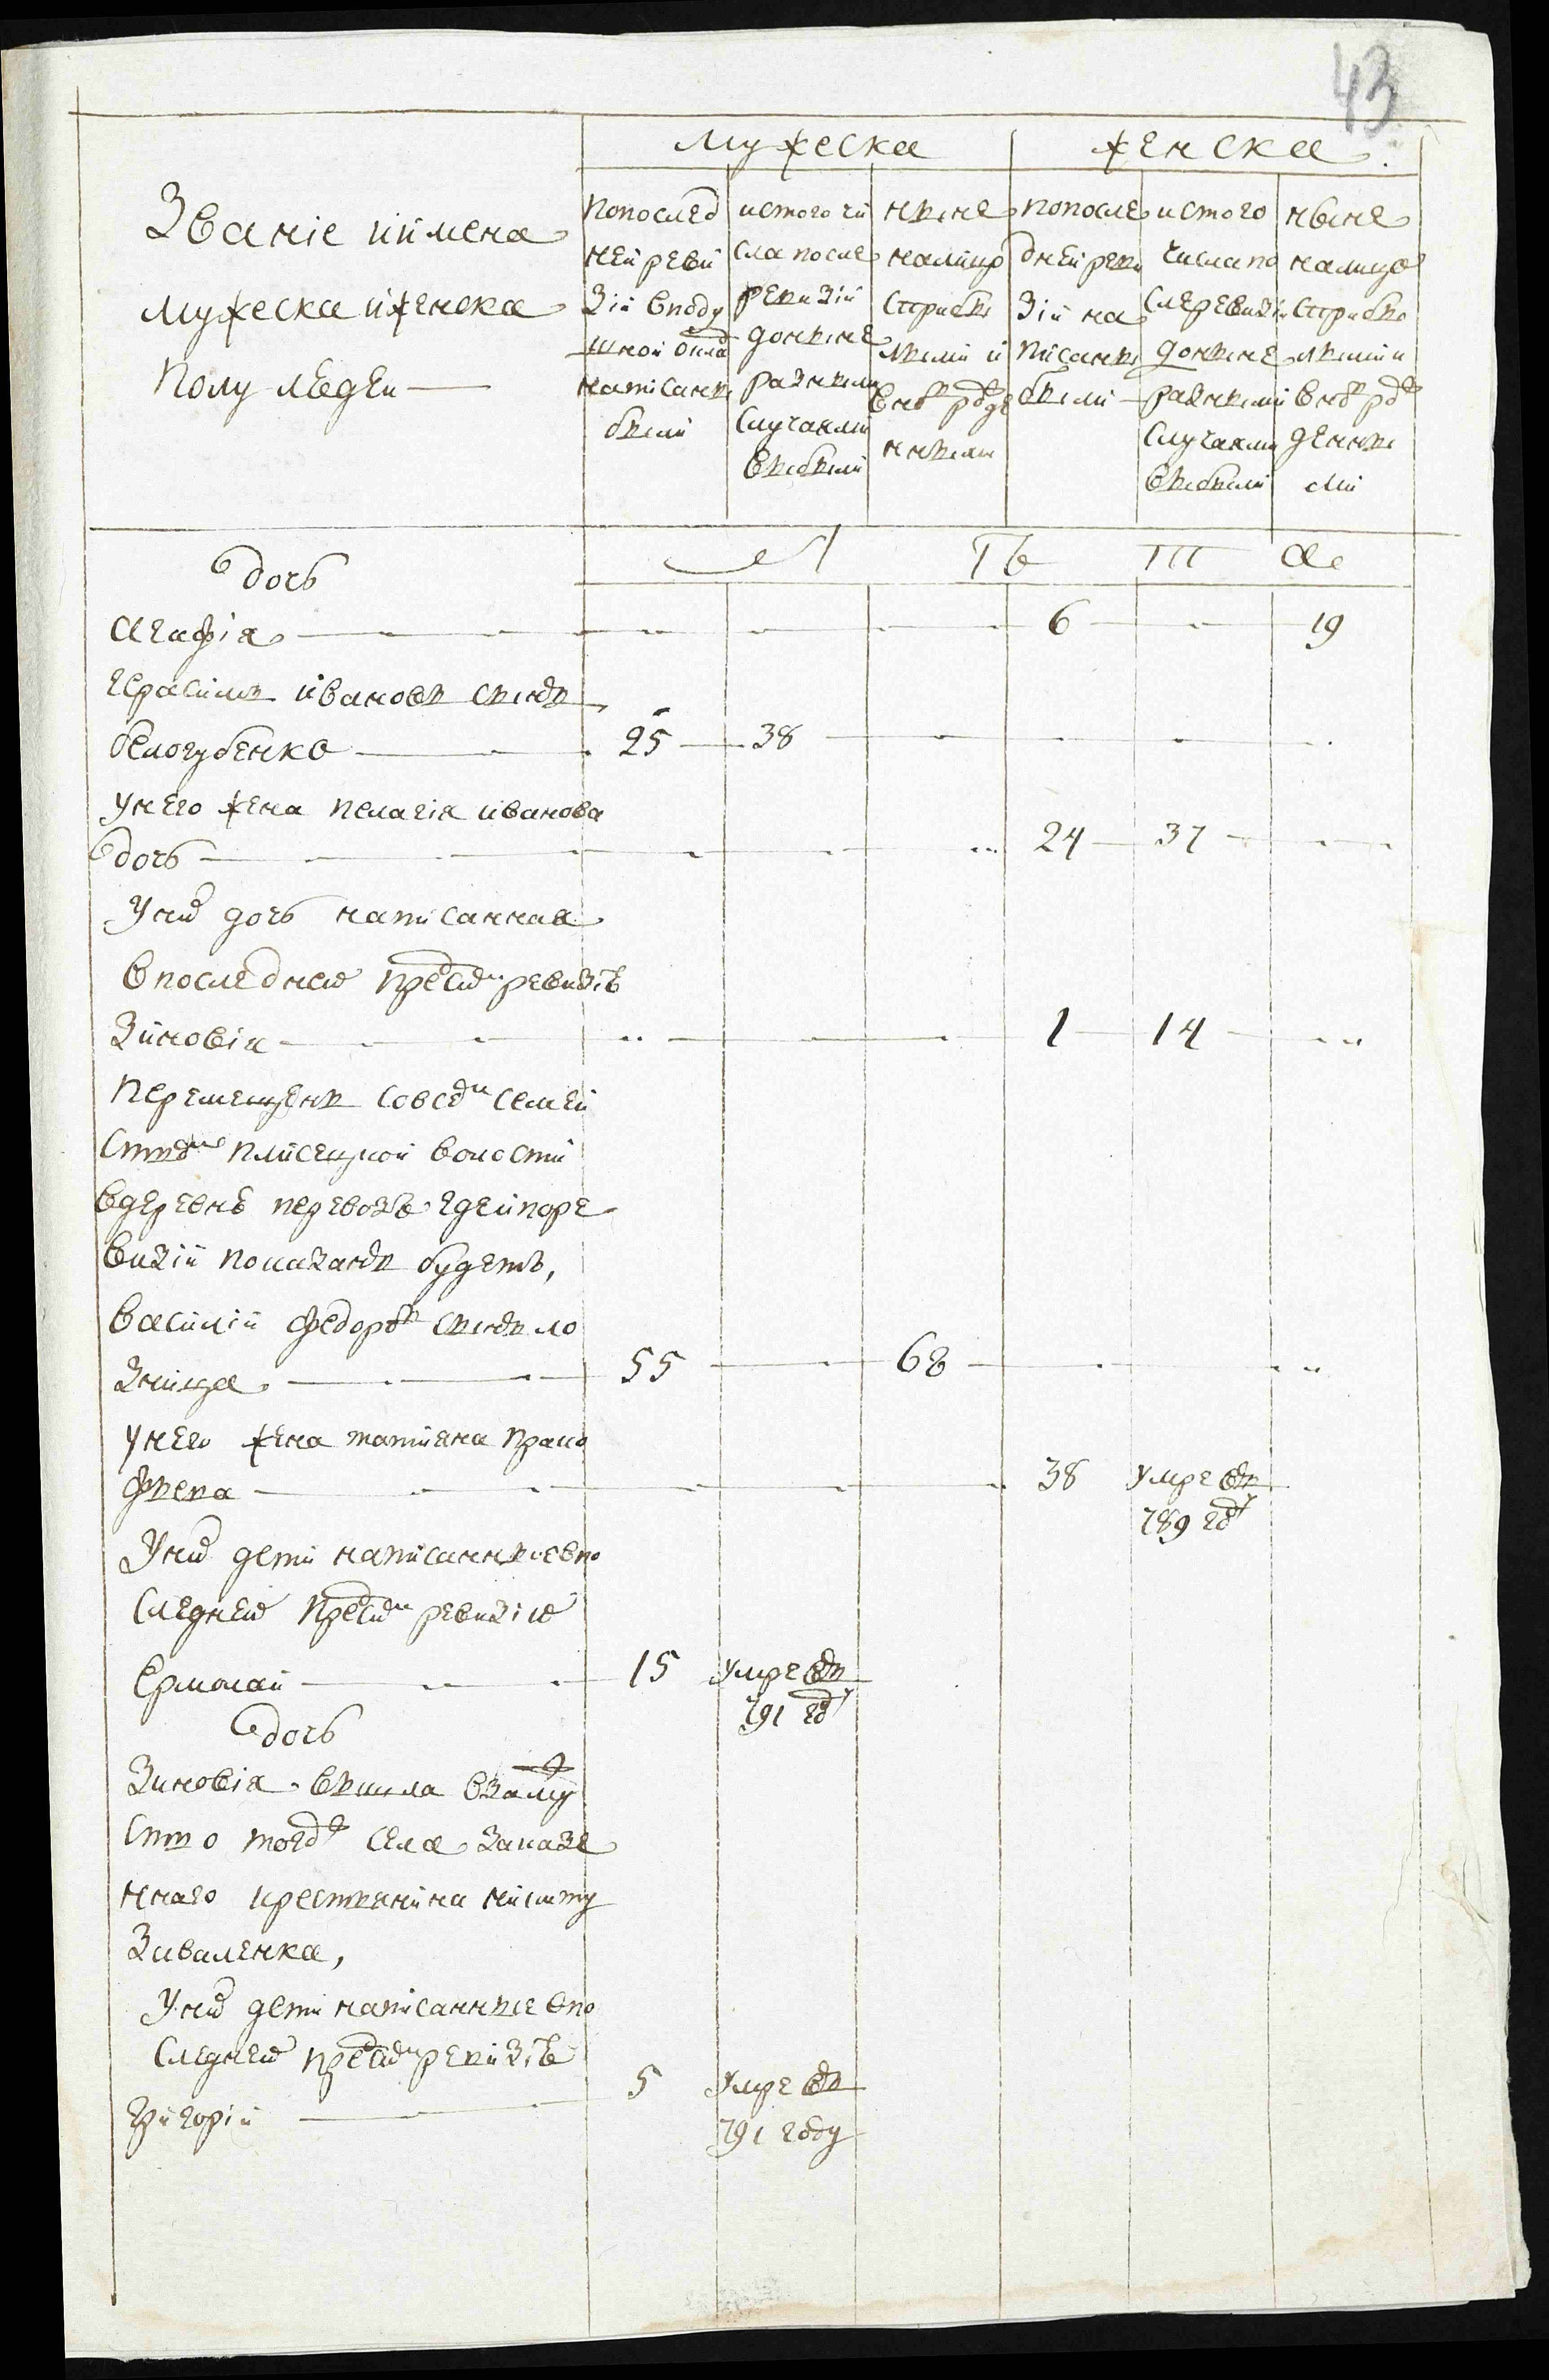 43
мужеска женска
Званіе и имена
мужеска и женска
полу людей
попослед
ней реви
зіи вподу
шной окла
написанъ
были
истого чи
сла после
ревизіи
донынѣ
разными
случаями
выбыли
нынѣ
налицо
сприбы
лыми и
вновъ рожде
нными
попосле
дней реви
зіи на
писаны
были
истого
числа по
слеревизіи
донынѣ
разными
случаями
выбыли
ныне
налицо
сприбы
лыми и
вновъ рож
денны
ми
лѣта
дочь
Агафія 6 19
Герасимъ ивановъ сынъ
белогубенко 25 38
унего жена пелагія иванова
дочь 24 37
Уних дочь написанная
впоследней пред сим ревизіѣ
Зиновія 1 14
перемещенъ совсем семей
ством плисецкой волости
вдеревнѣ перевозъ где и поре
визіи показанъ будетъ,
василій федоровъ сынъ ло
зница 55 68
унего жена татияна проко
фьева 38 умре въ
789 году
Уних дети написанные впо
следней пред сим ревизіи
Ермолай 15 умре въ
791 году
дочь
Зиновія вышла взаму
ство тогож села заказе
ннаго крестьянина никиту
Заваленка,
Уних дети написанные впо
следней пред сим ревизіѣ
григорій 5 Умре въ
791 году